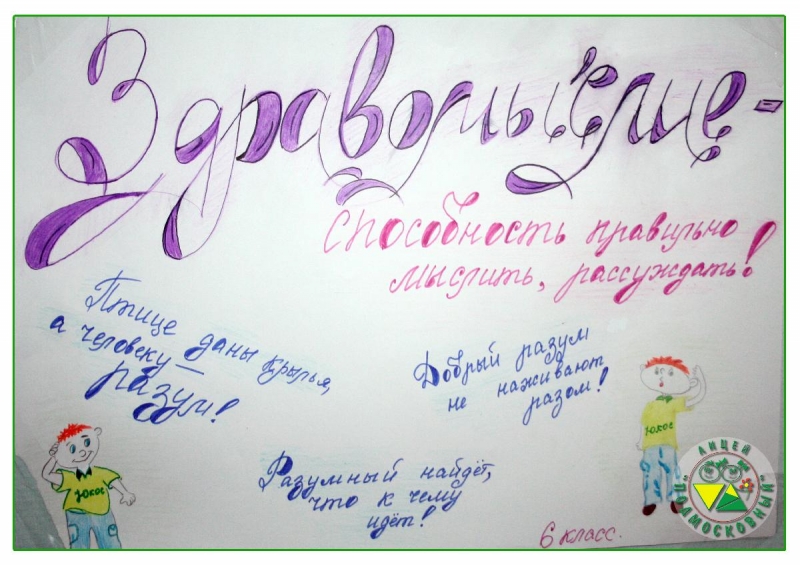 Здравомыслие-
способность правильно
мыслить, рассуждать!
Птице даны крылья,
а человеку —
разум!
Добрый разум
не наживают
разом!
Разумный найдёт,
что к чему
идёт!
Юкос
Юкос
6 класс.
ЛИЦЕЙ
"ПОДМОСКОВНЫЙ"